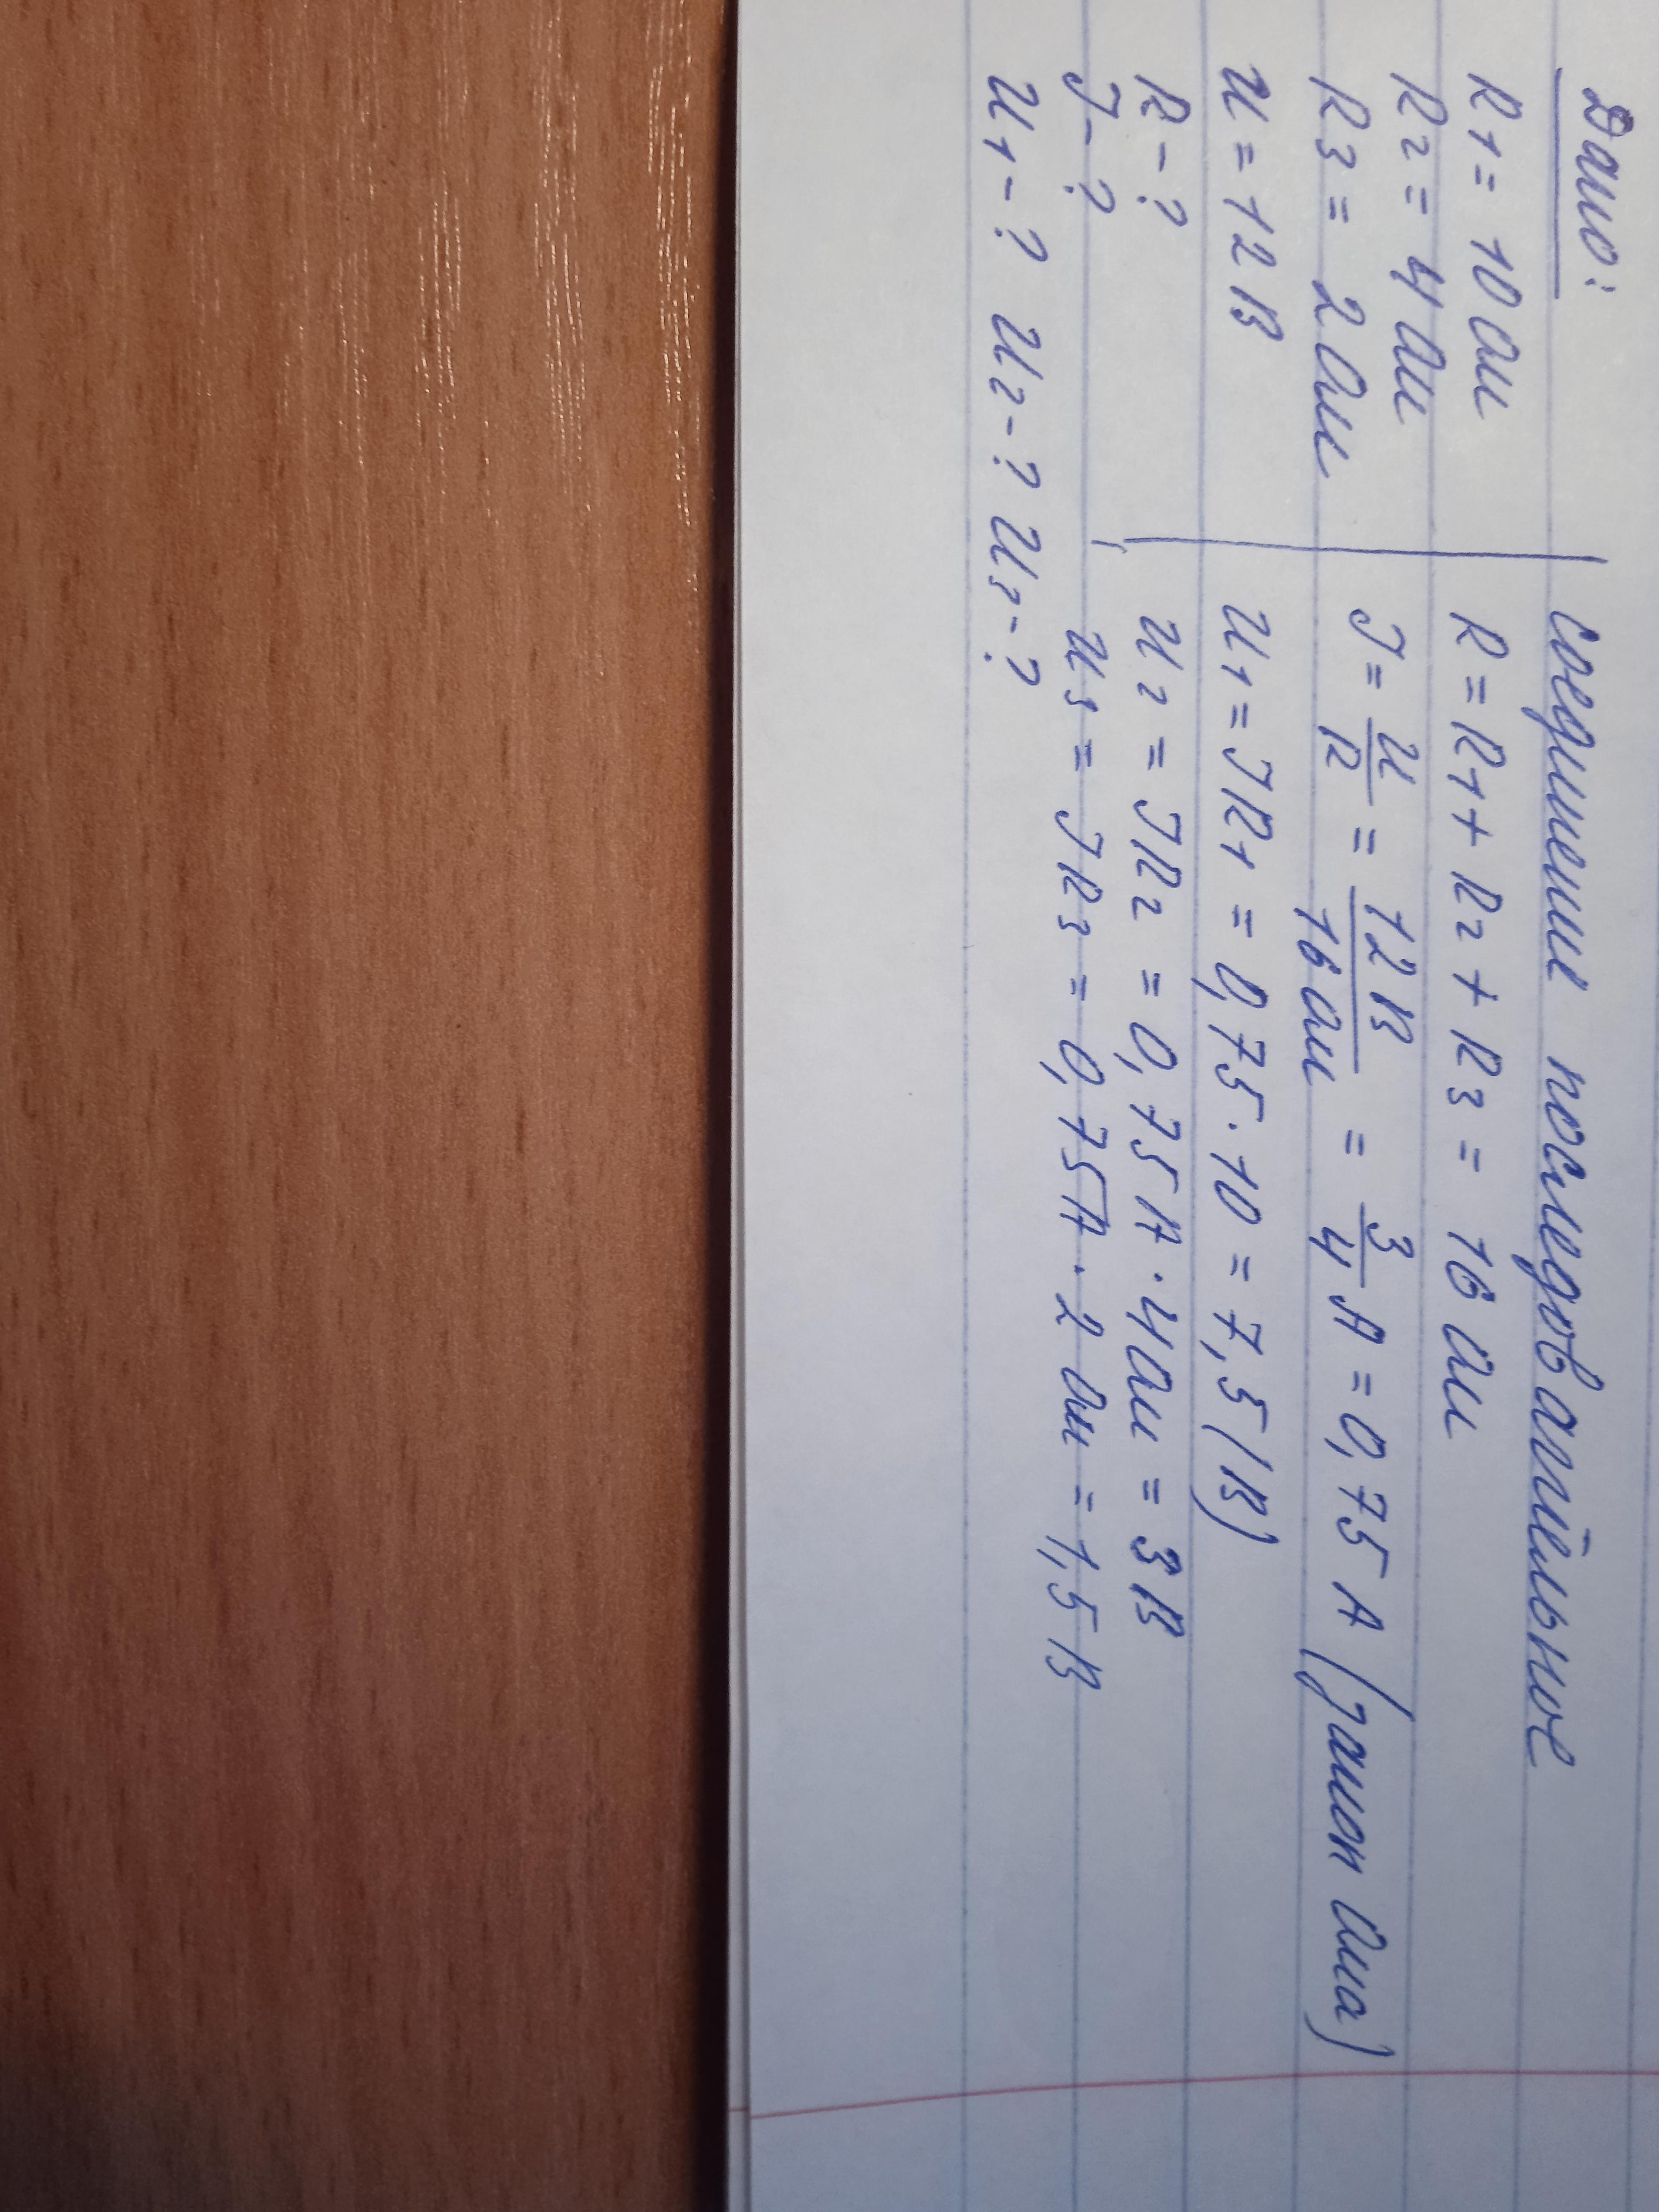 Дано:
R1 = 10 Ом
R2 = 4 Ом
R3 = 2 Ом
U = 12 В
R - ?
J - ?
U1 - ? U2 - ? U3 - ?
соединение последовательное
R = R1 + R2 + R3 = 16 Ом
J = U/R = 12 В/16 Ом = 3/4 А = 0,75 А (закон Ома)
U1 = JR1 = 0,75 · 10 = 7,5 (В)
U2 = JR2 = 0,75 А · 4 Ом = 3 В
U3 = JR3 = 0,75 А · 2 Ом = 1,5 В